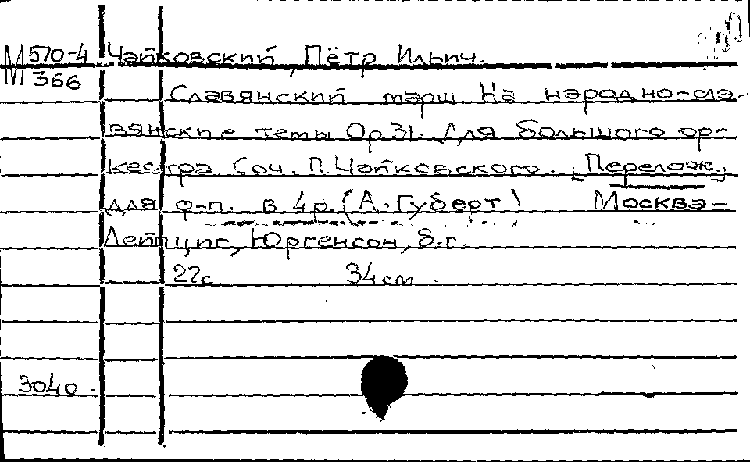 М 570-4 Чайковский, Пётр Ильич.
366
Славянский марш На народно-сла-
вянские темы Ор.31. Для большого ор-
кестра Соч. П.Чайковского. Перелож.
для ф-п. в 4р. (А.Губерт) Москва-
Лейпциг, Юргенсон, б.г.
22с 34см
3040